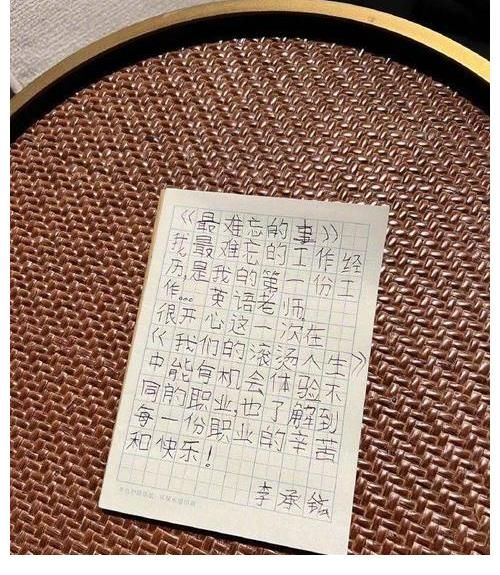 《最难忘的事》
我最难忘的工作经
历,是我的第一份工
作...英语老师
很开心这一次在
《我们的滚烫人生》
中能有机会体验不
同的职业,也了解到
每一份职业的辛苦
和快乐!
李承铉